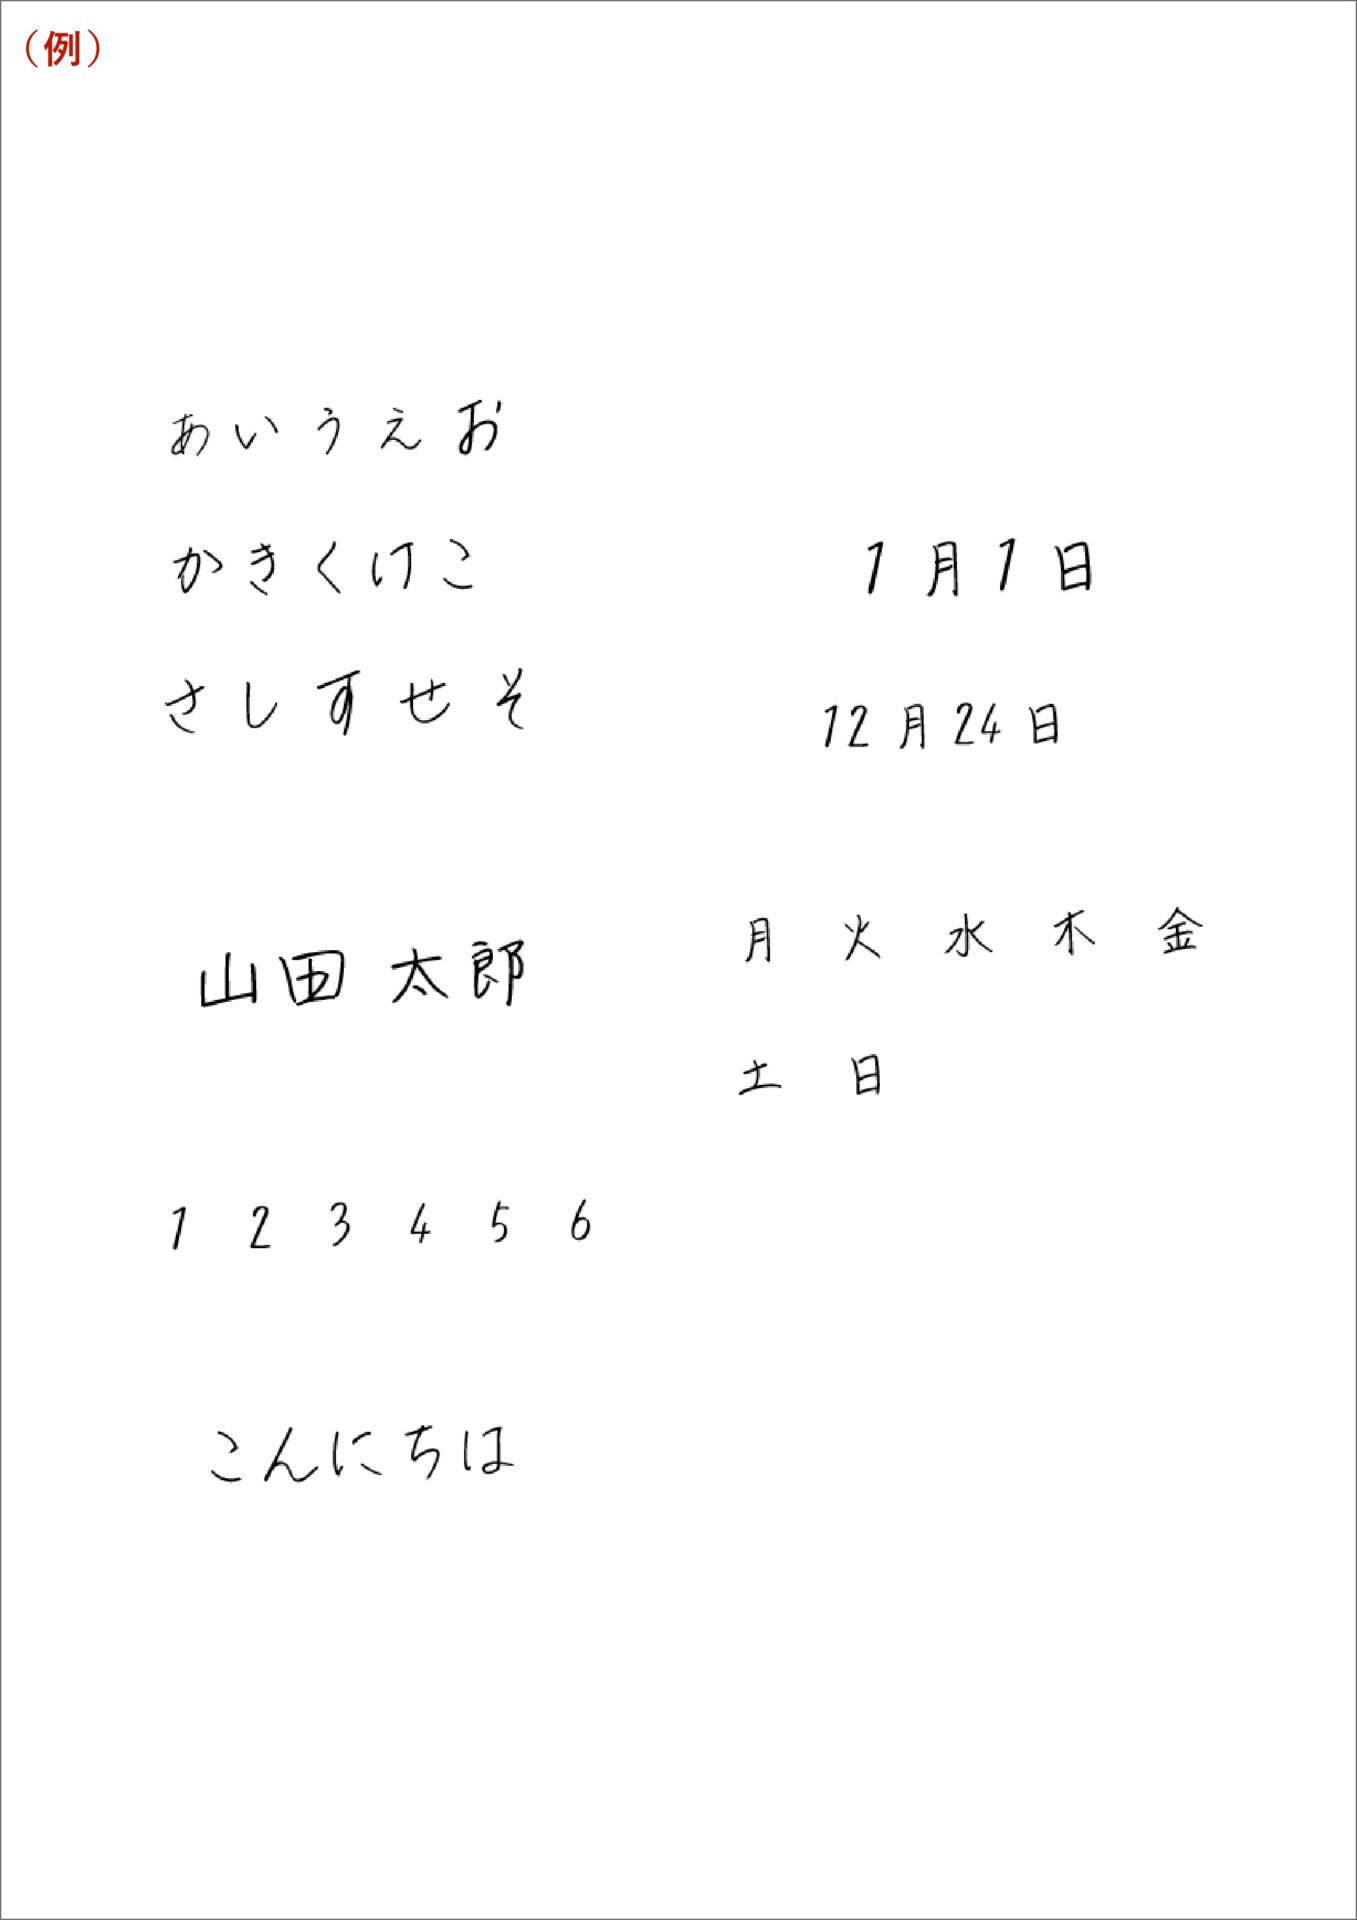 （例）
あいうえお
かきくけこ
さしすせそ
1月1日
12月24日
山田 太郎
月 火 水 木 金
土 日
1 2 3 4 5 6
こんにちは